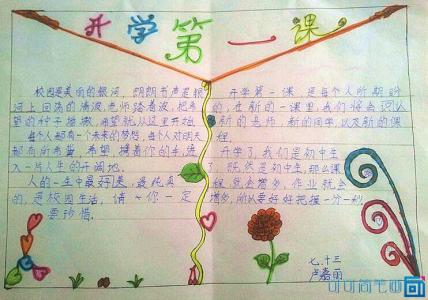 开学第一课
校园是美丽的银河,朗朗书声是银
河上回荡的清波,老师踏着波,把希
望的种子播撒,希望就从这里开始。
每个人都有一个未来的梦想,每个人对明天
都有所希望,希望携着你的手,流
入一片人生的开阔地。
人的一生中最好美、最纯真
的,是校园生活,请你一定
要珍惜。
开学第一课,是每个人所期盼
的,在新的一课里,我们将会认识
新的老师,新的同学,以及新的课
程。
开学了,我们是初中生
了,既然是初中生,那么课
程就会增多,作业就会
增多,所以要好好把握一分一秒。
七、十三
卢嘉丽
可可简笔画